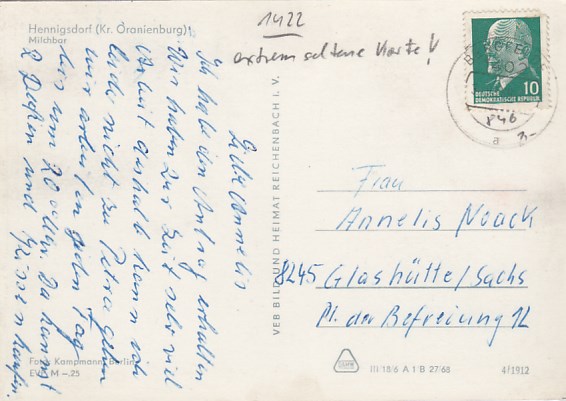 Hennigsdorf (Kr. Oranienburg)
Milchbar
1422
extrem seltene Karte!
DEUTSCHE
DEMOKRATISCHE REPUBLIK
10
846
a
3,-
Liebe Annelis
Ich habe den Antrag erhalten
Wir haben zur Zeit sehr viel
Arbeit deshalb kann ich
leider nicht zu Petra gehen
wir arbeiten jeden Tag
bis um 20 Uhr. Da kannst
2 Decken und
VEB BILD UND HEIMAT REICHENBACH I. V.
Frau
Annelis Noack
8245 Glashütte/Sachs
Pl. der Befreiung 12
Foto: Kampmann, Berlin
EVP M -.25
III/18/6 A 1/B 27/68
4/1912